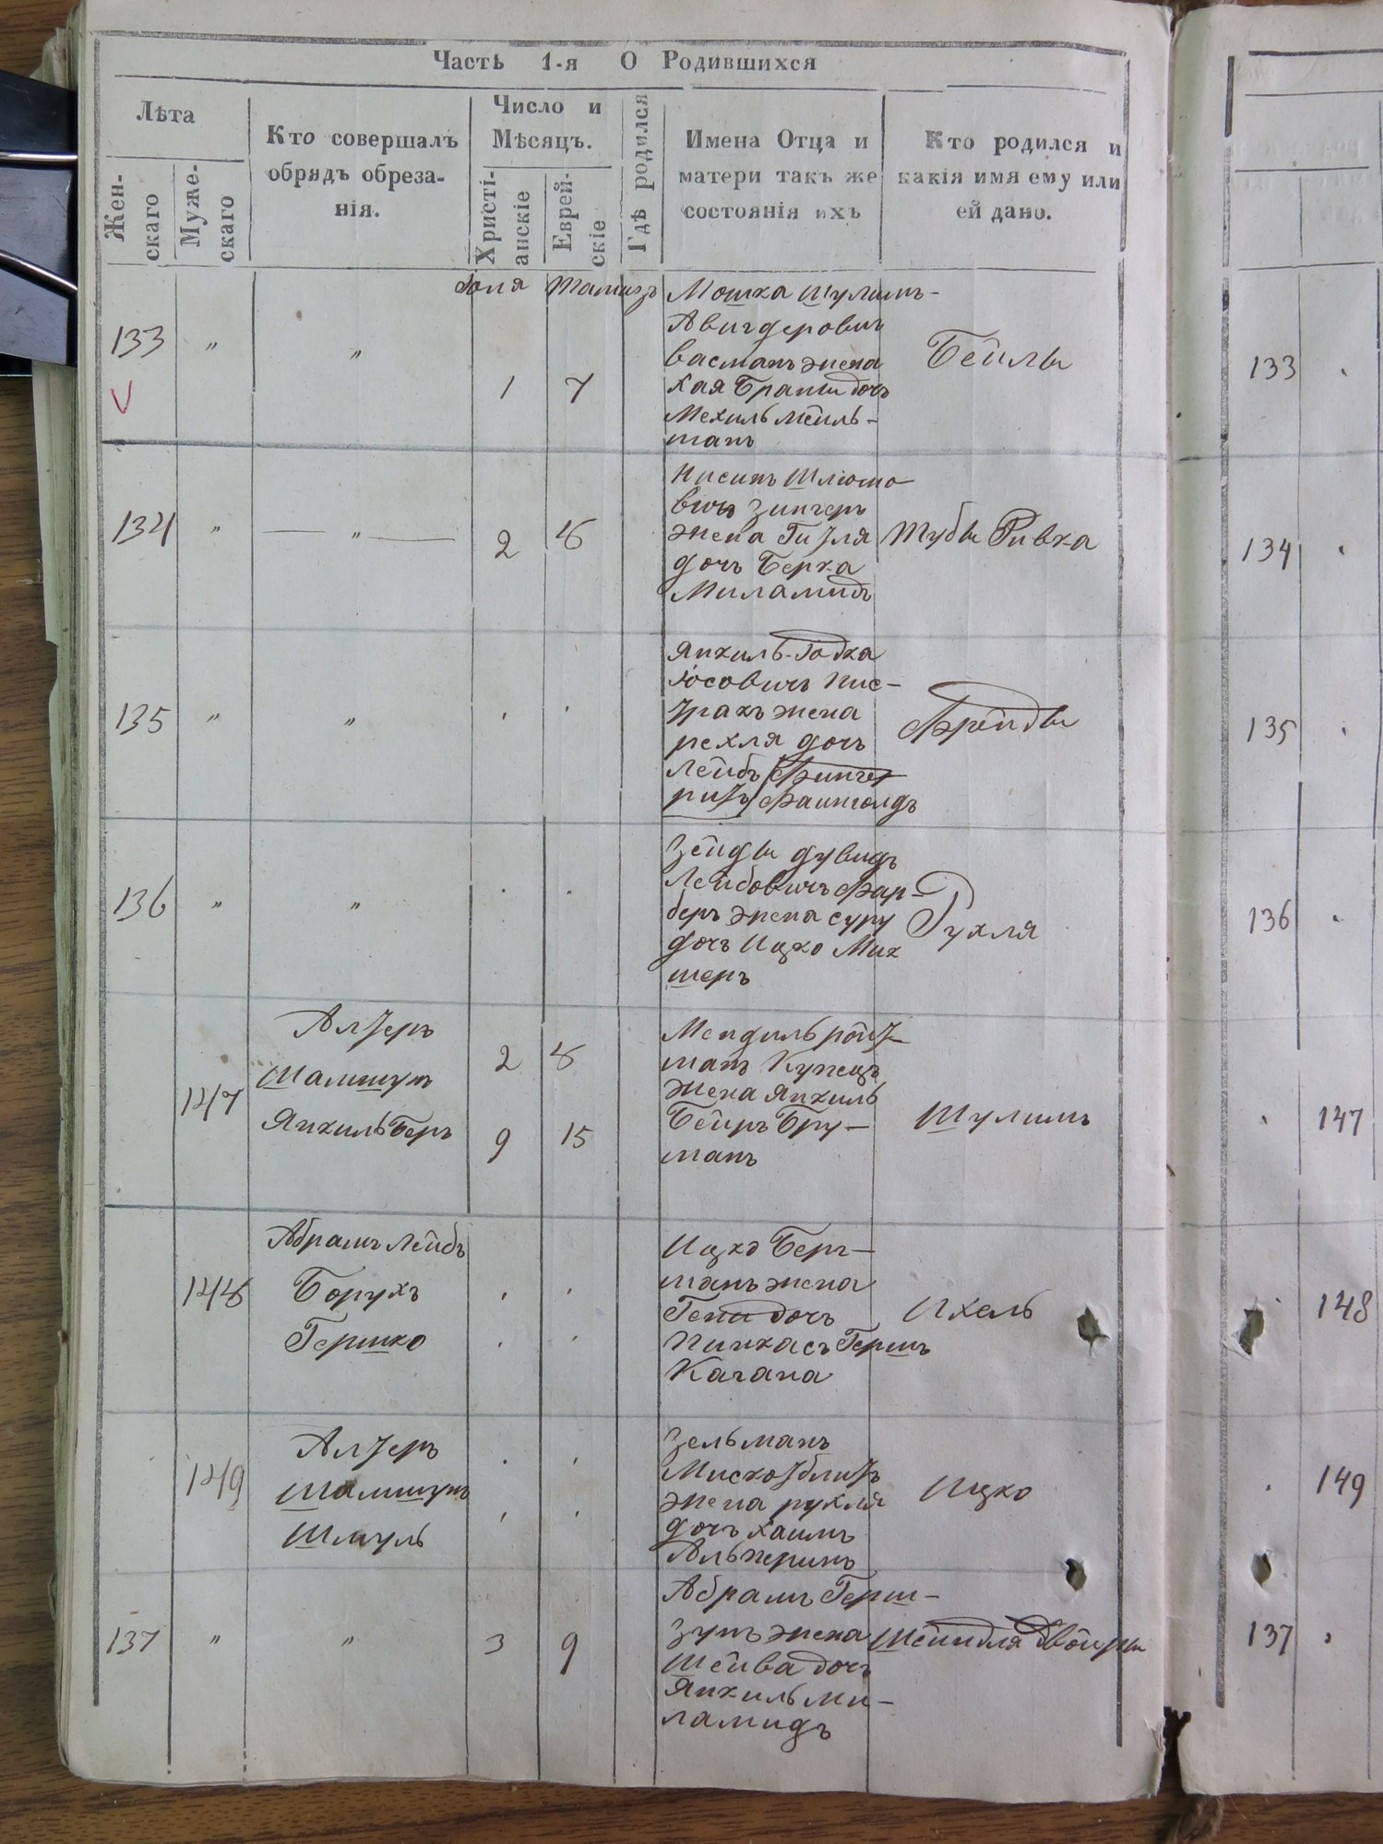 Часть 1-я О Родившихся
Лѣта
Женскаго
Мужескаго
Кто совершалъ
обрядъ обреза-
нія.
Число и
Мѣсяцъ.
Христі-
анскіе
Еврей-
скіе
Гдѣ родился
Имена Отца и
матери такъ же
состоянія ихъ
Кто родился и
какія имя ему или
ей дано.
Іюля Тамузъ
133 " " 1 7
V
Мошка Шулимъ-
Авигдеровичъ
Васманъ жена
Хая Браны дочь
Мехиль Мейль-
манъ
Бейлы
133
134 " " 2 8
Нисинъ Шлиомо
вичъ Зингеръ
жена Гизля
дочъ Берка
Миламидъ
Тубы Ривка
134
135 " "
Янкиль-Іодка
Іосовичъ Пис-
жена
рехля дочъ
Лейбъ
Фаинголдъ
Фрейды
135
136 " "
Зейды дувидъ
Лейбовичъ Фар-
беръ жена суру
дочъ Ицко Мих
шеръ
Рухля
136
147
Алтеръ
Шамшунъ
Янкиль Беръ
2 8
9 15
Мендиль ройз-
манъ Купецъ
жена Янкиль
Бейръ Бру-
манъ
Шулимъ
147
148
Абрамъ Лейбъ
Борухъ
Гершко
Ицко Берг-
манъ жена
Гени дочъ
Пинкасъ Гершъ
Кагана
Ихель
148
149
Алтеръ
Шамшунъ
Шмуль
Зельманъ
жена рухля
дочъ хаимъ
Альперинъ
Ицко
149
137 " " 3 9
Абрамъ Герш-
зунъ жена
Шейва дочъ
Янкиль Ми-
ламидъ
Шейндля Двойры
137